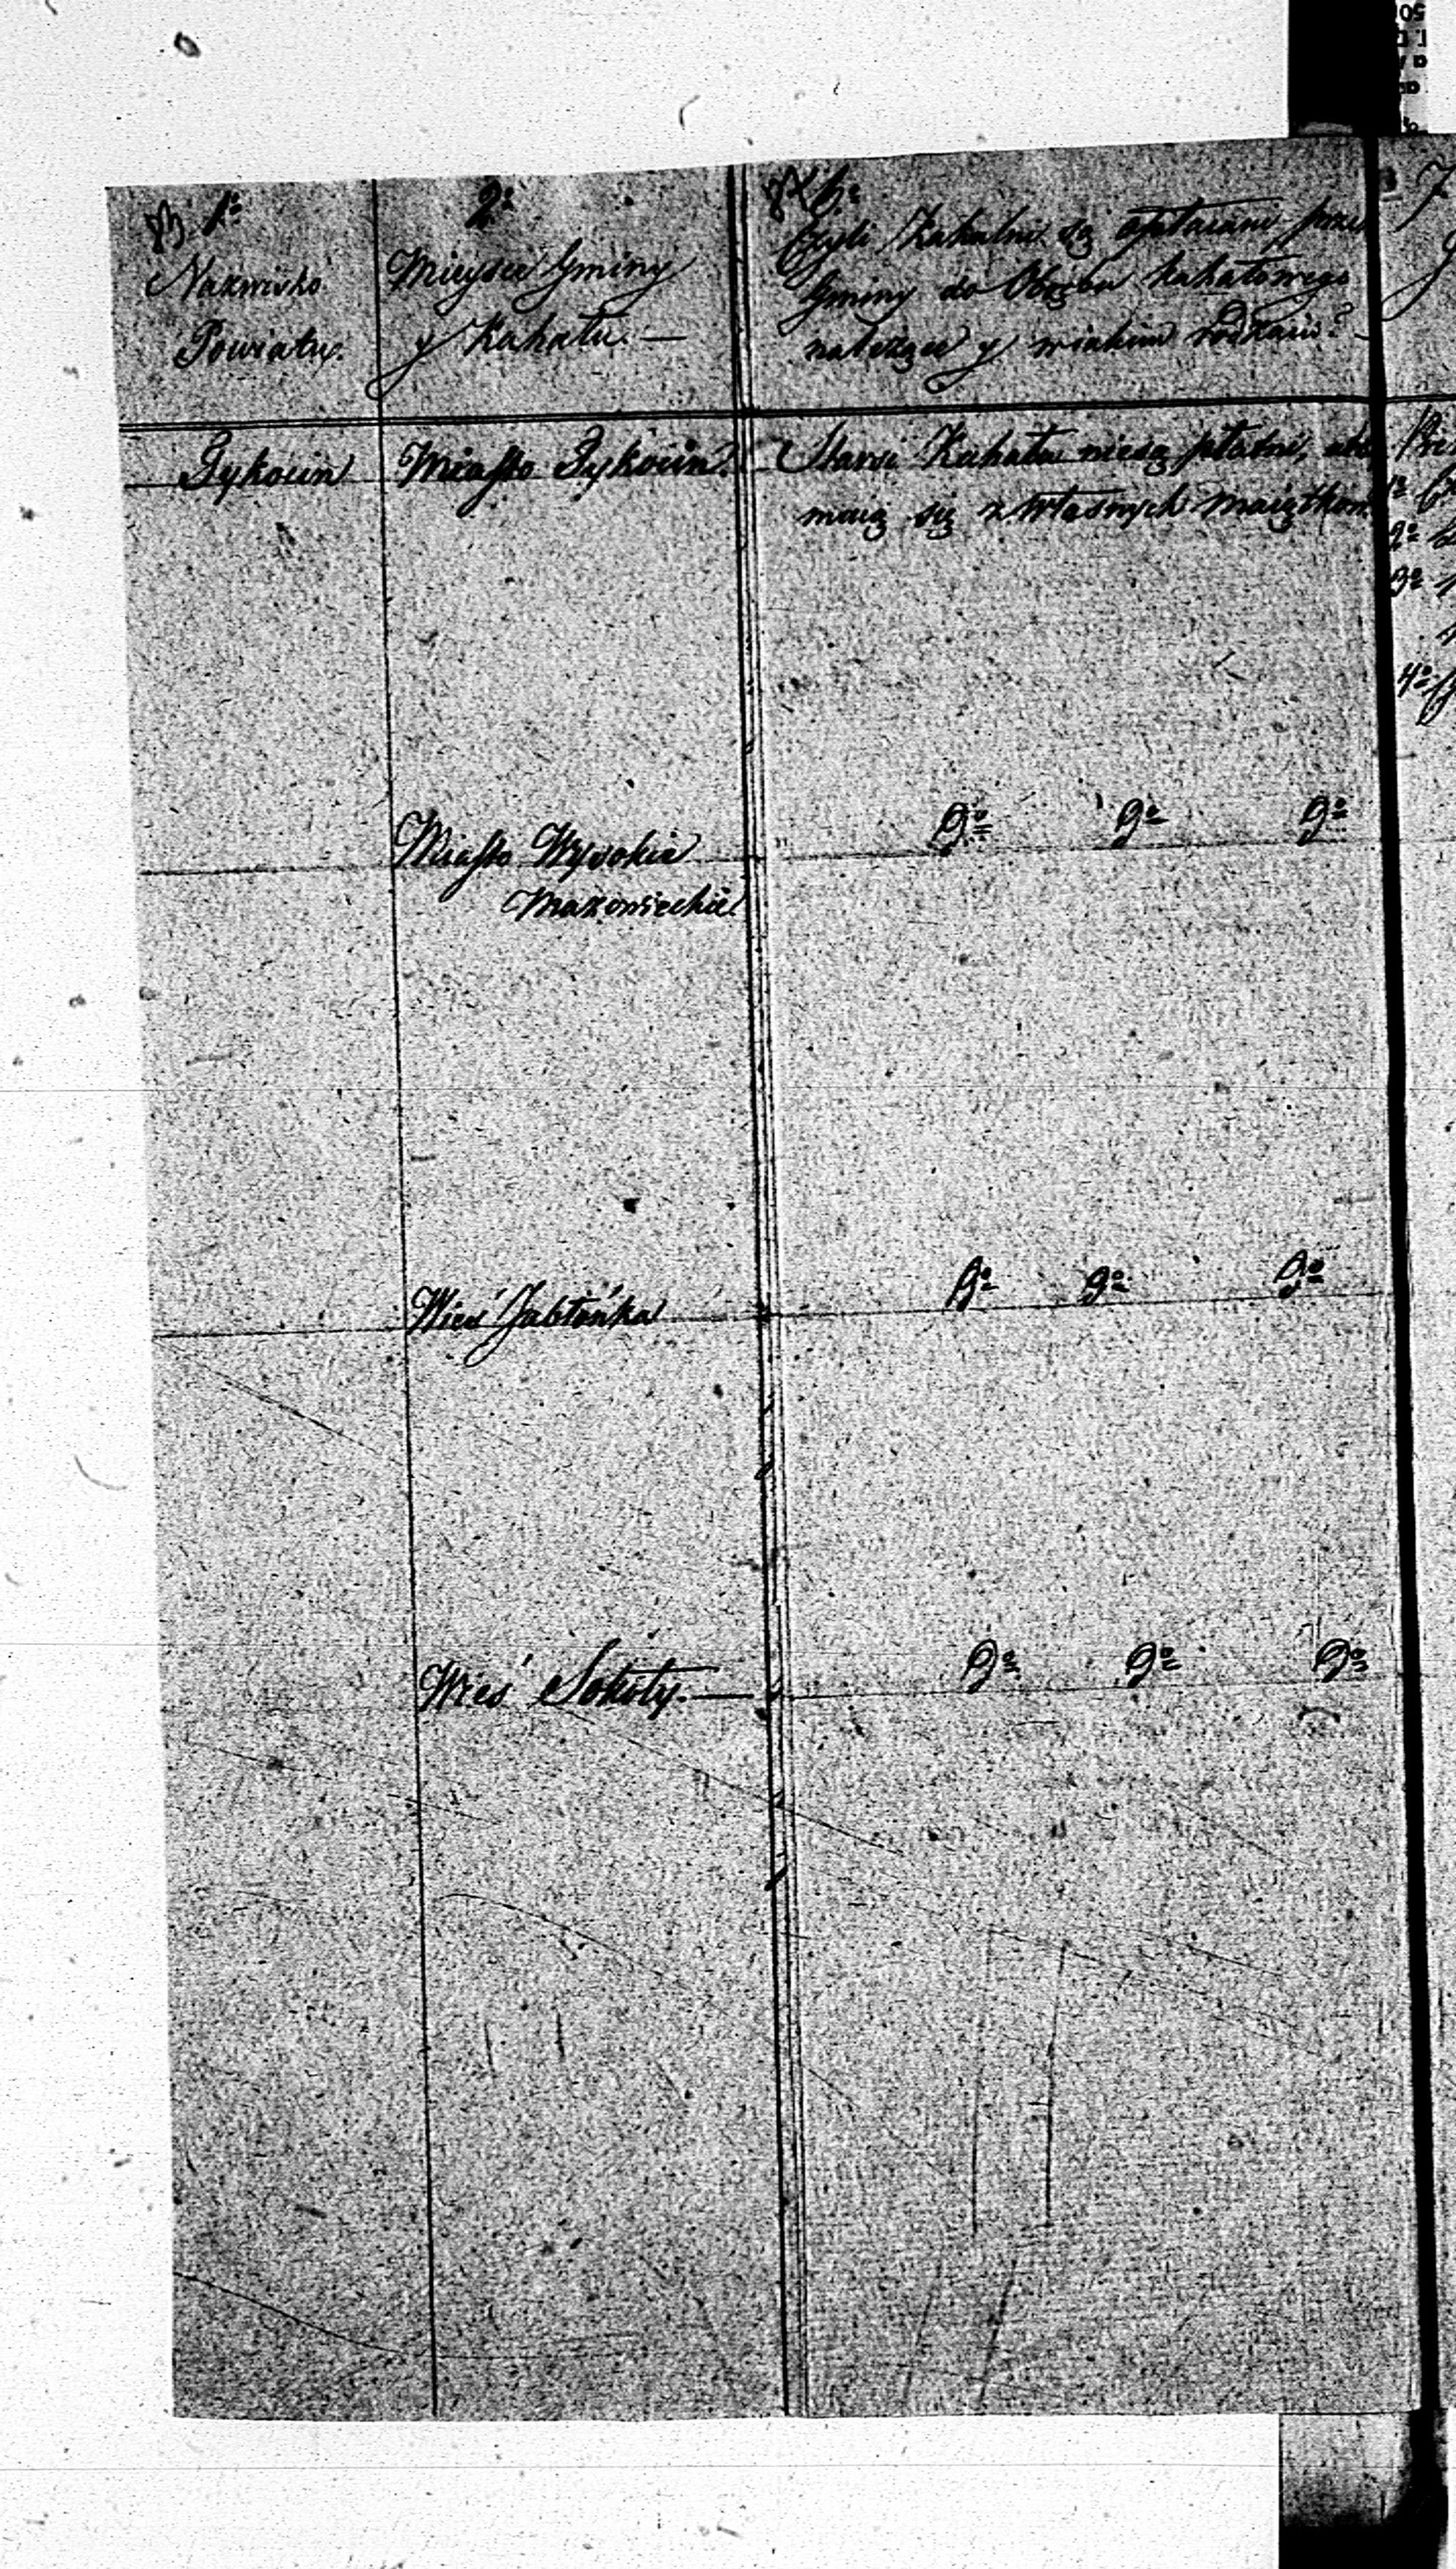 1º
Nazwisko
Powiatu.
2º
Mieysce Gminy
y Kahału. —
6º
Czyli Kahalni są opłacani przez
Gminy do Obrębu kahałowego
należące y w iakim rodzaiu?
Tykocin
Miasto Tykocin.
Starsi Kahału niesą płatni, utrzy
muią się z własnych maiątkow
Miasto Wysokie
Mazowieckie
Dº dº dº
Wieś Jabłońka
Dº dº dº
Wieś Sokoły. —
Dº dº dº
1º
2º
3º
4º